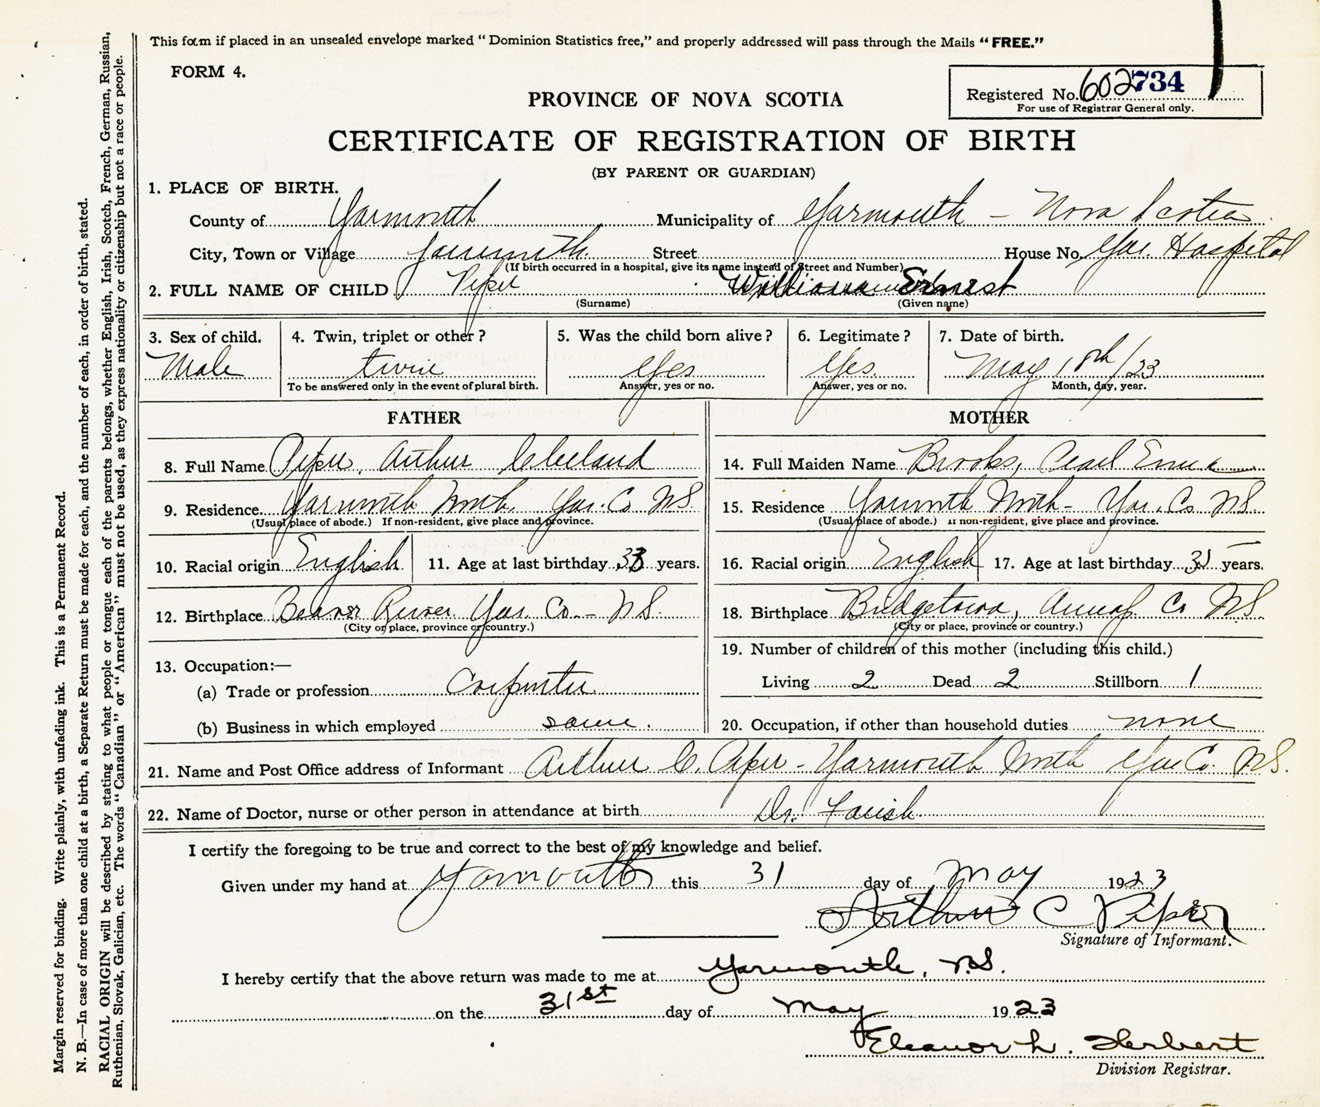 This form if placed in an unsealed envelope marked "Dominion Statistics free," and properly addressed will pass through the Mails "FREE."
FORM 4.
Registered No. 602734
For use of Registrar General only.
PROVINCE OF NOVA SCOTIA
CERTIFICATE OF REGISTRATION OF BIRTH
(BY PARENT OR GUARDIAN)
1. PLACE OF BIRTH.
County of Yarmouth Municipality of Yarmouth - Nova Scotia
City, Town or Village Yarmouth Street House No. Yar. Hospital
(If birth occurred in a hospital, give its name instead of Street and Number)
2. FULL NAME OF CHILD Piper William Ernest
(Surname) (Given name)
3. Sex of child. 4. Twin, triplet or other? 5. Was the child born alive? 6. Legitimate? 7. Date of birth.
Male twin Yes Yes. May 18th/23
To be answered only in the event of plural birth. Answer, yes or no. Answer, yes or no. Month, day, year.
FATHER MOTHER
8. Full Name Piper, Arthur Cleeland 14. Full Maiden Name Brooks, Pearl
9. Residence Yarmouth North, Yar. Co NS. 15. Residence Yarmouth North - Yar. Co NS.
(Usual place of abode.) If non-resident, give place and province. (Usual place of abode.) If non-resident, give place and province.
10. Racial origin English 11. Age at last birthday 33 years. 16. Racial origin English 17. Age at last birthday years.
12. Birthplace Beaver River Yar. Co - NS. 18. Birthplace Bridgetown, Annap. Co NS.
(City or place, province or country.) (City or place, province or country.)
13. Occupation:— 19. Number of children of this mother (including this child.)
(a) Trade or profession Carpenter Living 2 Dead 2 Stillborn 1
(b) Business in which employed same. 20. Occupation, if other than household duties none
21. Name and Post Office address of Informant Arthur C. Piper - Yarmouth North Yar Co. NS.
22. Name of Doctor, nurse or other person in attendance at birth Dr. Farish
I certify the foregoing to be true and correct to the best of my knowledge and belief.
Given under my hand at Yarmouth this 31 day of May 1923
Arthur C Piper
Signature of Informant.
I hereby certify that the above return was made to me at Yarmouth, N.S.
on the 31st day of May 1923
Eleanor L. Herbert
Division Registrar.
Margin reserved for binding. Write plainly, with unfading ink. This is a Permanent Record.
N. B.—In case of more than one child at a birth, a Separate Return must be made for each, and the number of each, in order of birth, stated.
RACIAL ORIGIN will be described by stating to what people or tongue each of the parents belongs, whether English, Irish, Scotch, French, German, Russian,
Ruthenian, Slovak, Galician, etc. The words "Canadian" or "American" must not be used, as they express nationality or citizenship but not a race or people.